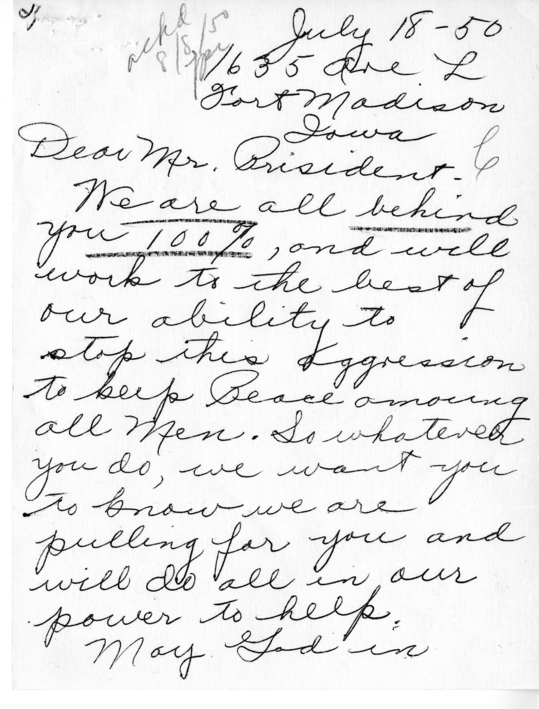 July 18-50
1635 Ave L
Fort Madison
Iowa
Dear Mr. Prisident-
We are all behind
you 100%, and will
work to the best of
our ability to
stop this Aggression
to keep Peace amoung
all Men. So whatever
you do, we want you
to know we are
pulling for you and
will do all in our
power to help.
May God in